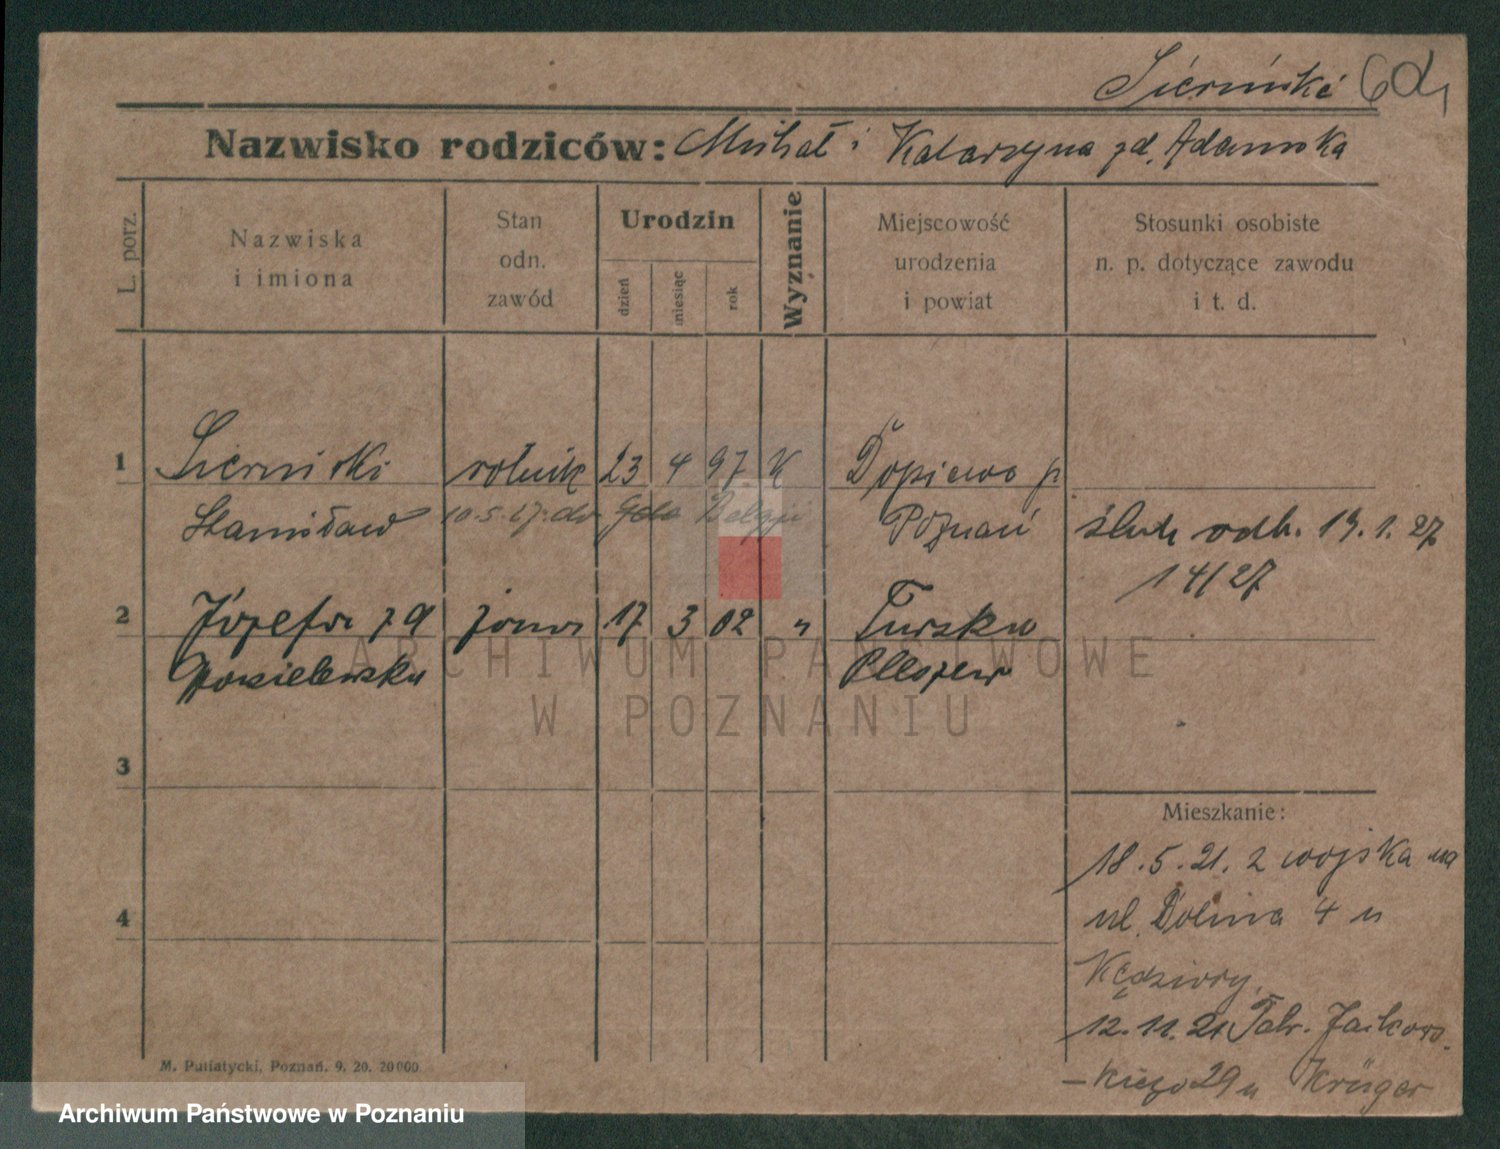 Nazwisko rodziców: Michał i Katarzyna zd. Adamska
L. porz.
Nazwiska
i imiona
Stan
odn.
zawód
Urodzin
dzień
miesiąc
rok
Wyznanie
Miejscowość
urodzenia
i powiat
Stosunki osobiste
n. p. dotyczące zawodu
i t. d.
1 rolnik 23 4 97 K Dopiewo p
Stanisław 10.5.27. do Belgji Poznań
ślub odb. 19.1.27
14/27
2 Józefa żona 17 3 02 " Tursko
Pleszew
3
4
Mieszkanie:
18.5.21. z wojska na
ul. Dolina 4 u
Kędziory
12.11.21 Jackows-
-kiego 29 u Krüger
M. Putiatycki, Poznań. 9. 20. 20000.
ARCHIWUM PAŃSTWOWE
W POZNANIU
Archiwum Państwowe w Poznaniu